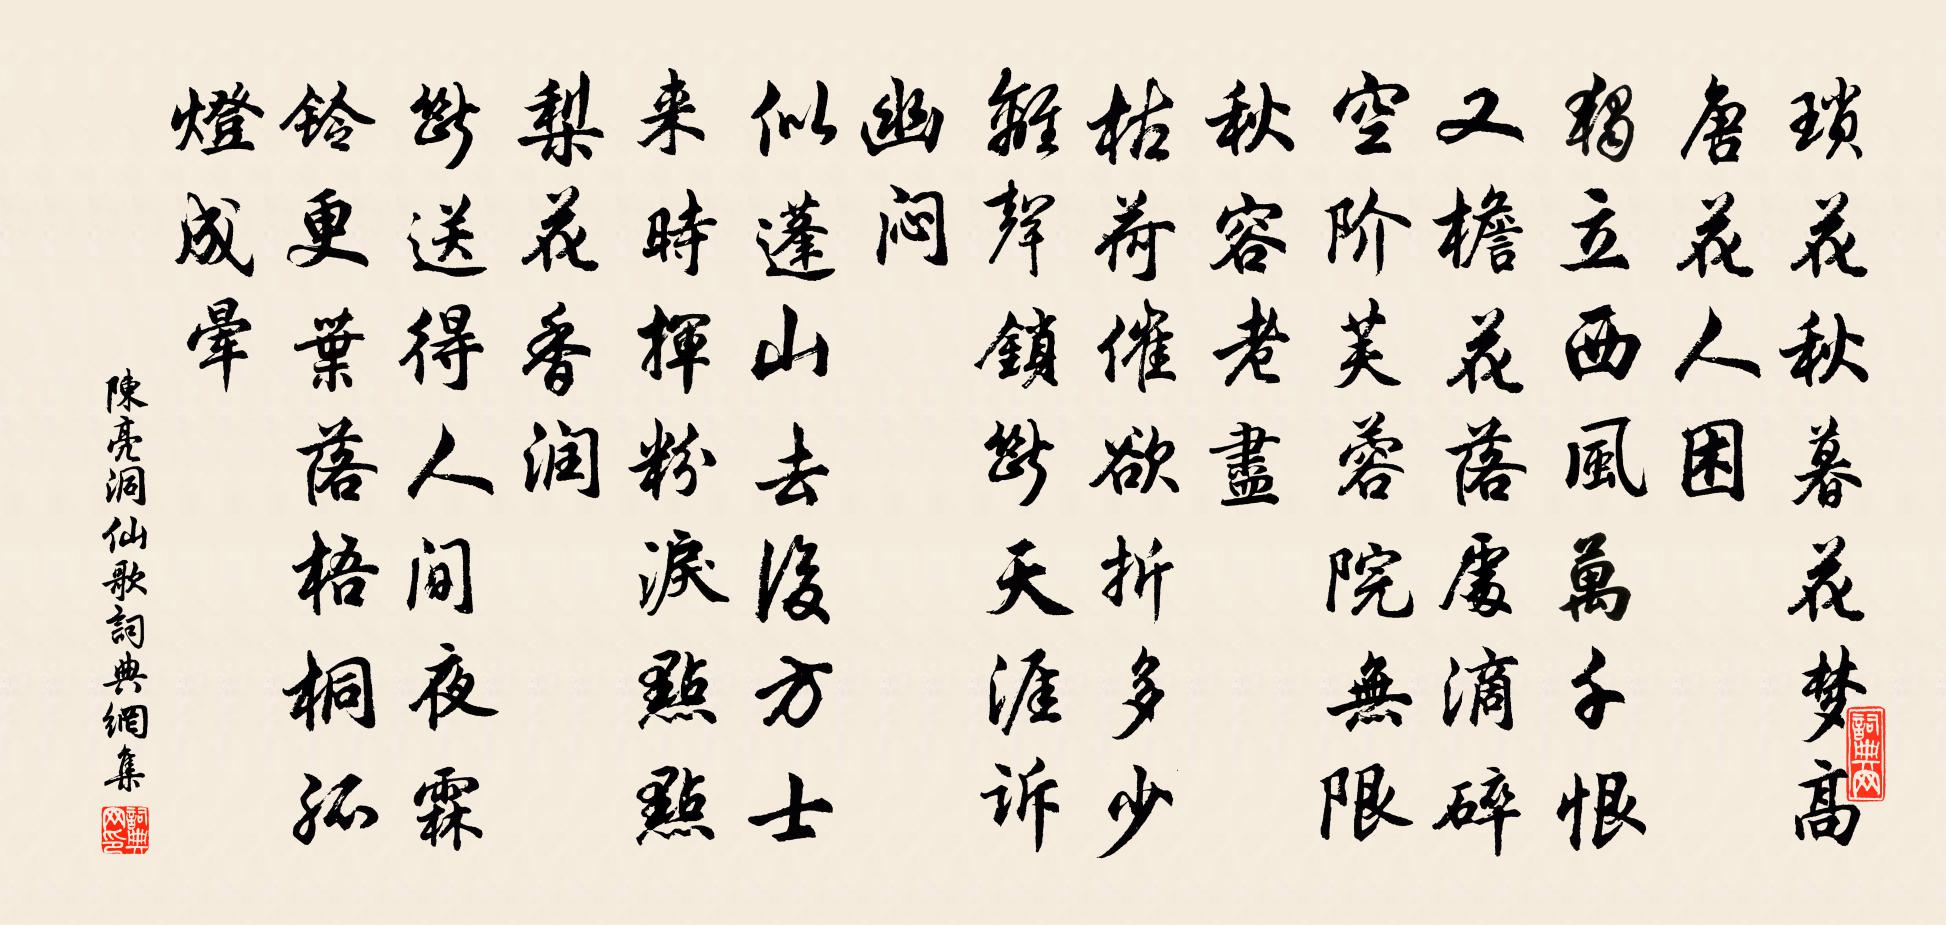 瑣花秋暮花梦高
唐花人困
獨立西風萬千恨
又檐花落處滴碎
空阶芙蓉院無限
秋容老盡
枯荷催欲折多少
離聲鎖斷天涯诉
幽闷
似蓬山去後方士
来時揮粉淚點點
梨花香润
斷送得人间夜霖
鈴更葉落梧桐孤
燈成暈
陳亮洞仙歌詞典網集
詞典网
詞典网印